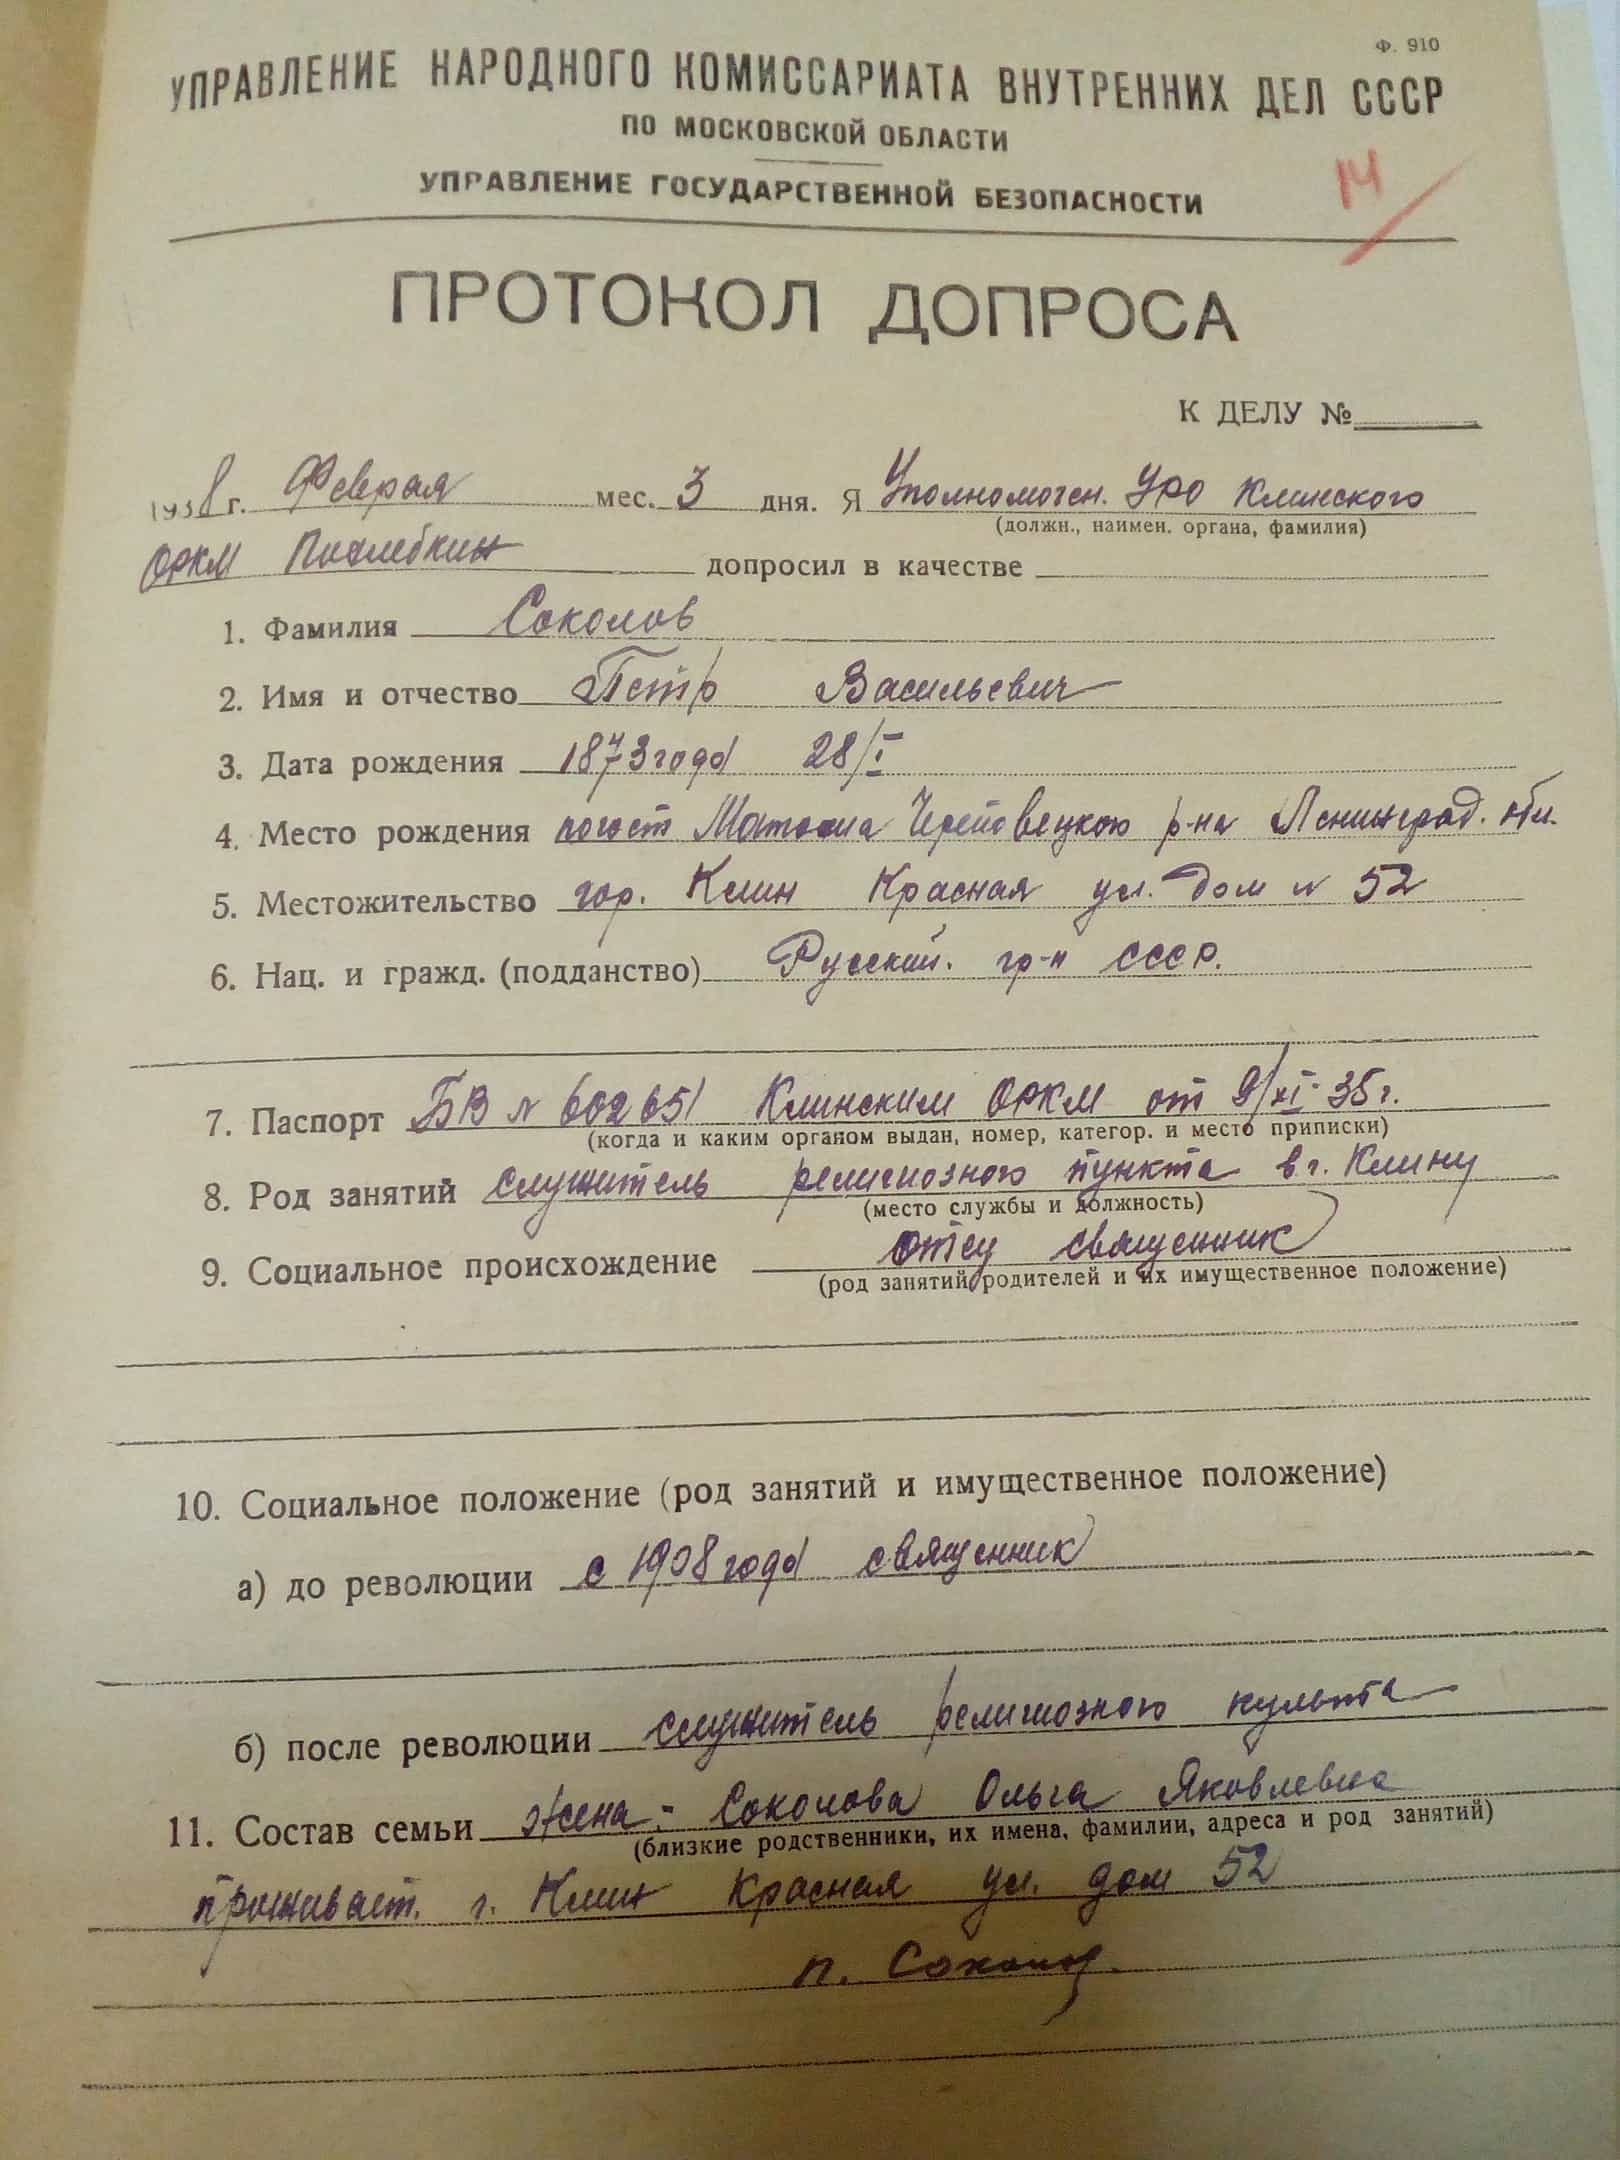 Ф. 910
УПРАВЛЕНИЕ НАРОДНОГО КОМИССАРИАТА ВНУТРЕННИХ ДЕЛ СССР
ПО МОСКОВСКОЙ ОБЛАСТИ
УПРАВЛЕНИЕ ГОСУДАРСТВЕННОЙ БЕЗОПАСНОСТИ
14
ПРОТОКОЛ ДОПРОСА
К ДЕЛУ №
1938 г. Февраля мес. 3 дня. Я Уполномочен. УРО Клинского
(должн., наимен. органа, фамилия)
ОРКМ допросил в качестве
1. Фамилия Соколов
2. Имя и отчество Петр Васильевич
3. Дата рождения 1873 года 28/I
4. Место рождения погост Череповецкого р-на Ленинград. обл.
5. Местожительство гор. Клин Красная ул. Дом № 52
6. Нац. и гражд. (подданство) Русский. гр-н СССР.
7. Паспорт БВ № 602651 Клинским ОРКМ от 9/XI-35 г.
(когда и каким органом выдан, номер, категор. и место приписки)
8. Род занятий служитель религиозного пункта в г. Клину
(место службы и должность)
9. Социальное происхождение отец священник
(род занятий родителей и их имущественное положение)
10. Социальное положение (род занятий и имущественное положение)
а) до революции с 1908 года священник
б) после революции служитель религиозного культа
11. Состав семьи жена:- Соколова Ольга Яковлевна
(близкие родственники, их имена, фамилии, адреса и род занятий)
проживает. г. Клин Красная ул. дом 52
П. Соколов.